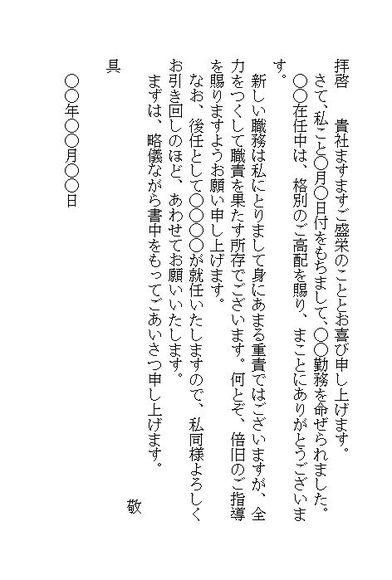 拝啓　貴社ますますご盛栄のこととお喜び申し上げます。
さて、私こと〇月〇日付をもちまして、〇〇勤務を命ぜられました。
〇〇在任中は、格別のご高配を賜り、まことにありがとうございま
す。
新しい職務は私にとりまして身にあまる重責ではございますが、全
力をつくして職責を果たす所存でございます。何とぞ、倍旧のご指導
を賜りますようお願い申し上げます。
なお、後任として〇〇〇〇が就任いたしますので、私同様よろしく
お引き回しのほど、あわせてお願いいたします。
まずは、略儀ながら書中をもってごあいさつ申し上げます。
敬
具
〇〇年〇〇月〇〇日